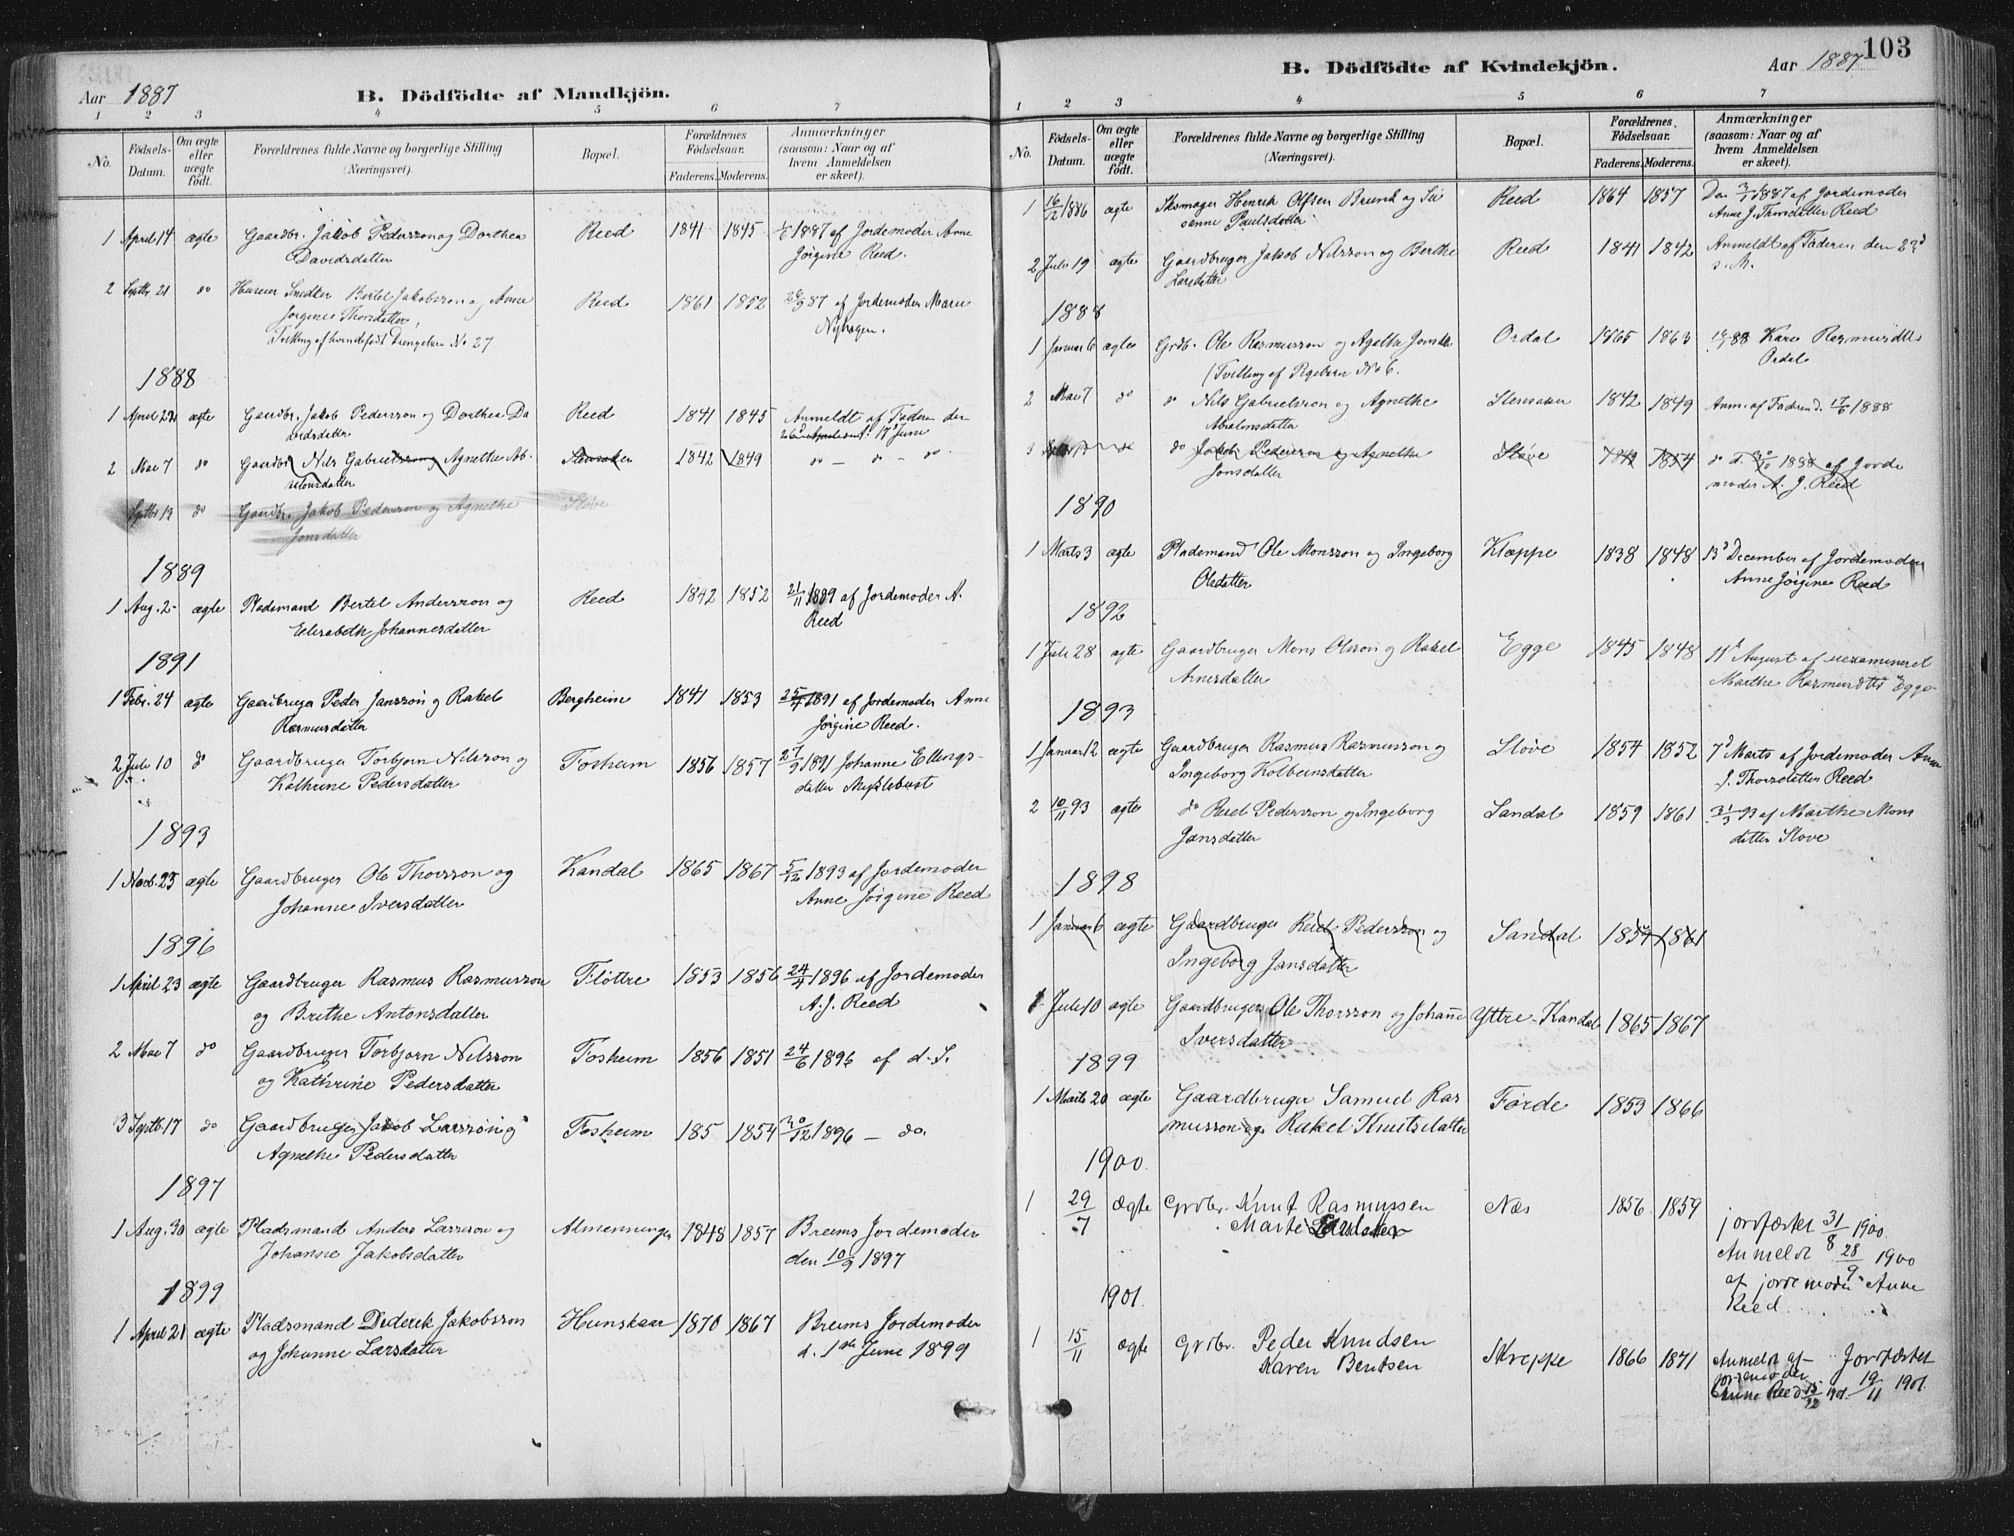 Aar 1887
B. Dödfödte af Mandkjön.
1 2 3 4 5 6 7
No.
Födsels-
Datum.
Om ægte
eller
uægte
födt.
Forældrenes fulde Navne og borgerlige Stilling
(Næringsvei).
Bopæl.
Forældrenes
Födselsaar.
Faderens. Moderens.
Anmærkninger
(saasom: Naar og af
hvem Anmeldelsen
er skeet).
1 April 14 ægte Gaardbr. Jakob Pedersson og Dorthea Reed 1841 1845 1887 af Jordemoder Anne
Davidsdatter Jørgine Reed.
2 Septbr 21 do Snedker Bertel Jakobsson og Anne Reed 1861 1852 87 af Jordemoder Marie
Jørgine Thorsdatter, Nyhagen.
Tvilling af levendefødt Drengebarn No 27
1888
1 April 22 ægte Gaardbr. Jakob Pedersson og Dorthea Da Reed 1841 1845 Anmeldt af Faderen den
vidsdatter 17 Juni
2 Mai 7 do Gaardbr Nils Gabrielsson og Agnethe Ab- Stensaker 1842 1849 do - do - do
salonsdatter
Septbr 13 do Gaardbr. Jakob Pedersson og Agnethe Støve
Jonsdatter
1889
1 Aug. 2 ægte Pladsmand Bertel Andersson og Reed 1842 1852 21/11 1889 af Jordemoder A.
Elisabeth Johannesdatter Reed
1891
1 Febr. 24 ægte Gaardbruger Peder Jansson og Rakel Bergheim 1841 1853 25/4 1891 af Jordemoder Anne
Rasmusdatter Jørgine Reed.
2 Juli 10 do Gaardbruger Torbjørn Nilsson og Fosheim 1856 1857 27/9 1891 Johanne Ellings-
Kathrine Pedersdatter datter Myklebust
1893
1 Novb. 25 ægte Gaardbruger Ole Thorsson og Kandal 1865 1867 5/12 1893 af Jordemoder
Johanne Iversdatter Anne Jørgine Reed
1896
1 April 23 ægte Gaardbruger Rasmus Rasmusson Fløttre 1853 1856 24/4 1896 af Jordemoder
og Brithe Antonsdatter A. J. Reed
2 Mai 7 do Gaardbruger Torbjørn Nilsson Fosheim 1856 1851 24/6 1896 af d. S.
og Kathrine Pedersdatter
3 Septb. 17 do Gaardbruger Jakob Larsson og Fosheim 185 1854 30/12 1896 - do.
Agnethe Pedersdatter
1897
1 Aug. 30 ægte Pladsmand Anders Larsson og Almenninge 1848 1857 Breims Jordemoder
Johanne Jakobsdatter den 10/9 1897
1899
1 April 21 ægte Pladsmand Diderik Jakobsson Hunskaar 1870 1867 Breims Jordemoder
og Johanne Larsdatter d. 1ste Juni 1899
103
B. Dödfödte af Kvindekjön.
Aar 1887
1 2 3 4 5 6 7
No.
Födsels-
Datum.
Om ægte
eller
uægte
födt.
Forældrenes fulde Navne og borgerlige Stilling
(Næringsvei).
Bopæl.
Forældrenes
Födselsaar.
Faderens. Moderens.
Anmærkninger
(saasom: Naar og af
hvem Anmeldelsen
er skeet).
1 16/12 1886 ægte Skomager Henrik Olsen Brunk og Su Reed 1864 1857 Den 3/1 1887 af Jordemoder
sanne Paulsdatter Anne J. Thorsdatter Reed
2 Juli 19 ægte Gaardbruger Jakob Nilsson og Berthe Reed 1841 1842 Anmeldt af Faderen den 23d
Larsdatter s. M.
1888
1 Januar 6 ægte Grdb. Ole Rasmusson og Agathe Jonsd. Ordal 1865 1863 88 Kari Rasmusdtr
(Tvilling af Pigebarn No 6. Ordal
2 Mai 7 do do Nils Gabrielsson og Agnethe Stensaker 1842 1849 Anm. af Faderen d. 17/6 1888
Absalonsdatter
3 do Jakob Pedersson og Agnethe Støve 1854 do d. 1888 af Jorde
Jonsdatter moder A. J. Reed
1890
1 Marts 3 ægte Pladsmand Ole Monsson og Ingeborg Kleppe 1838 1848 13d December af Jordemoder
Olsdatter Anne Jørgine Reed
1892
1 Juli 28 ægte Gaardbruger Mons Olsson og Rakel Egge 1845 1848 11d August af uexamineret
Arnesdatter Marthe Rasmusdtr Egge
1893
1 Januar 12 ægte Gaardbruger Rasmus Rasmusson og Støve 1854 1852 7d Marts af Jordemoder Anne
Ingeborg Kolbeinsdatter J. Thorsdatter Reed
2 10/11 93 ægte do Reid Pedersson og Ingeborg Sandal 1859 1861 31/3 93 af Marthe Mons
Jansdatter datter Støve
1898
1 Januar 6 ægte Gaardbruger Reid Pedersson og Sandal 1859 1861
Ingeborg Jansdatter
1 Juli 10 ægte Gaardbruger Ole Thorsson og Johanne Yttre-Kandal 1865 1867
Iversdatter
1899
1 Marts 20 ægte Gaardbruger Samuel Ras Førde 1853 1866
musson og Rakel Knutsdatter
1900
1 29/7 Ægte Grdbr. Knut Rasmussen Næs 1856 1859 jordfæstet 31/8 1900
Marte Anmeldt 28/9 1900
af jordemoder Anne
Reed
1901.
1 15/11 ægte Grdbr. Peder Knudsen Skreppe 1866 1871 Anmeldt af Jordfæstet
Karen Bentsen jordemoder 19/11 1901
Anne Reed 15/12 901.